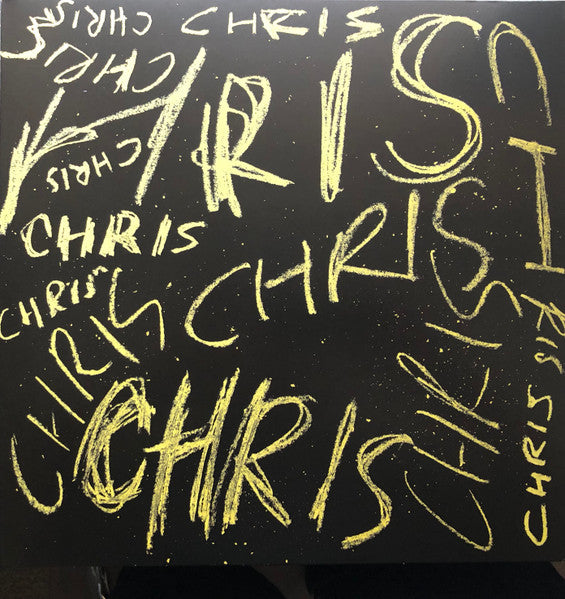 CHRIS
CHRIS
CHRIS
CHRIS
CHRIS
CHRIS
CHRIS
CHRIS
CHRIS
CHRIS
CHRIS
CHRIS
CHRIS
CHRIS